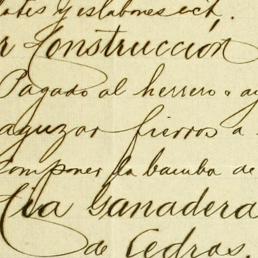 y eslabones ect.
r Construccion
Pagado al herrero
aguzar fierros a
componer la bamba de
Cia Ganadera
de Cedros.